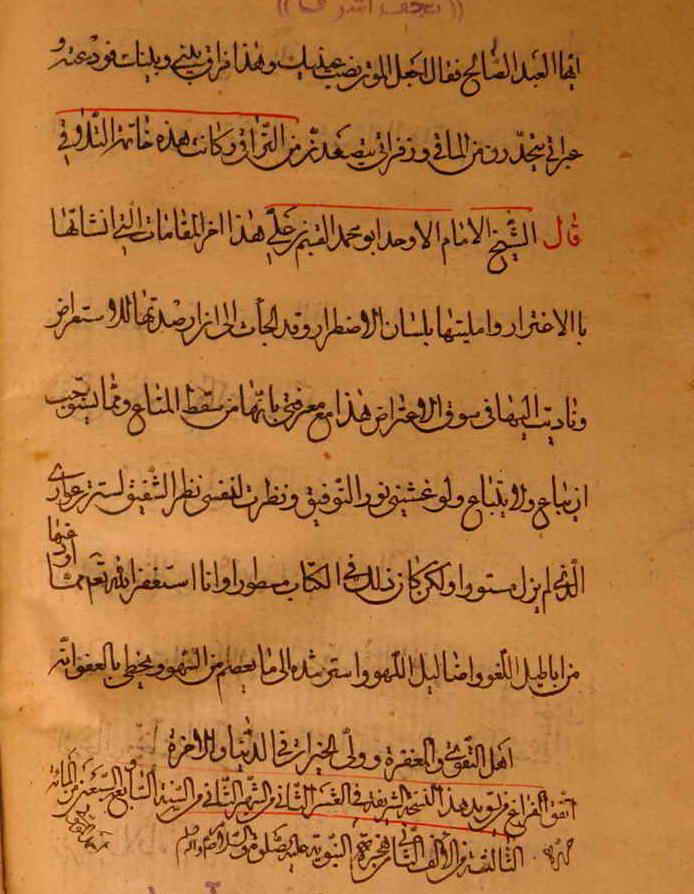 ايها العبد الصالح فقال اجعل الموت نصب عينيك وهذا فراق بيني وبينك فودعته و
عبراتي يتحدرن من الماقي وزفراتي يتصعدن من التراقي وكانت هذه خاتمة التلاقي
قال الشيخ الامام الاوحد ابو محمد القسم بن علي هذا اخر المقامات التي انشاتها
باالاغترار وامليتها بلسان الاضطرار وقد الجأت الى ان ارصدتها للاستعراض
وناديت اليها في سوق الاعتراض هذا مع معرفتي بانها من سقط المتاع ومما يستوجب
ان يباع ولا يبتاع ولو غشيني نور التوفيق ونظرت لنفسي نظر الشفيق لسترت عواري
الذي لم يزل مستورا ولكن كان ذلك في الكتاب مسطورا وانا استغفر الله تعم مما
اودعتها
من اباطيل اللغو واضاليل اللهو واسترشده الى ما يعصم من السهو ويحظي بالعفو انه
اهل التقوى والمغفرة وولي الخيرات في الدنيا والاخرة
اتفق الفراغ من تسويد هذا النسخة الشريفة في العشر الثاني من الشهر الثاني من السنة التابع السبعين من المائة
الثالثة من الالف الثاني من هجرة النبوية عليه